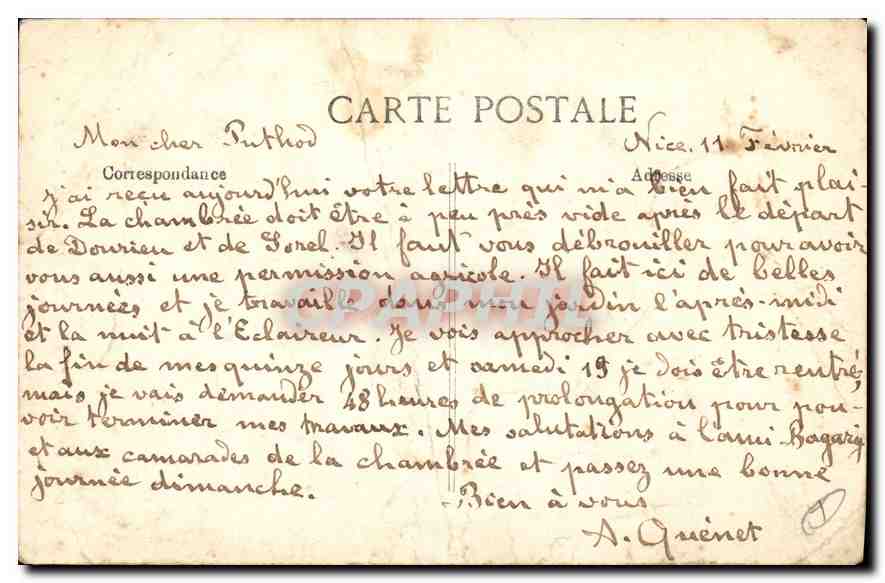 CARTE POSTALE
Mon cher Puthod
Nice. 11 Février
Correspondance
Adresse
J'ai reçu aujourd'hui votre lettre qui m'a bien fait plai-
sir. La chambrée doit être à peu près vide après le départ
de Dourieu et de Sorel. Il faut vous débrouiller pour avoir
vous aussi une permission agricole. Il fait ici de belles
journées et je travaille dans mon jardin l'après-midi
et la nuit à l'Eclaireur. Je vois approcher avec tristesse
la fin de mes quinze jours et samedi 19 je dois être rentré,
mais je vais demander 48 heures de prolongation pour pou-
voir terminer mes travaux. Mes salutations à l'ami
et aux camarades de la chambrée et passez une bonne
journée dimanche.
Bien à vous
A. Quénet
CPAPHIL